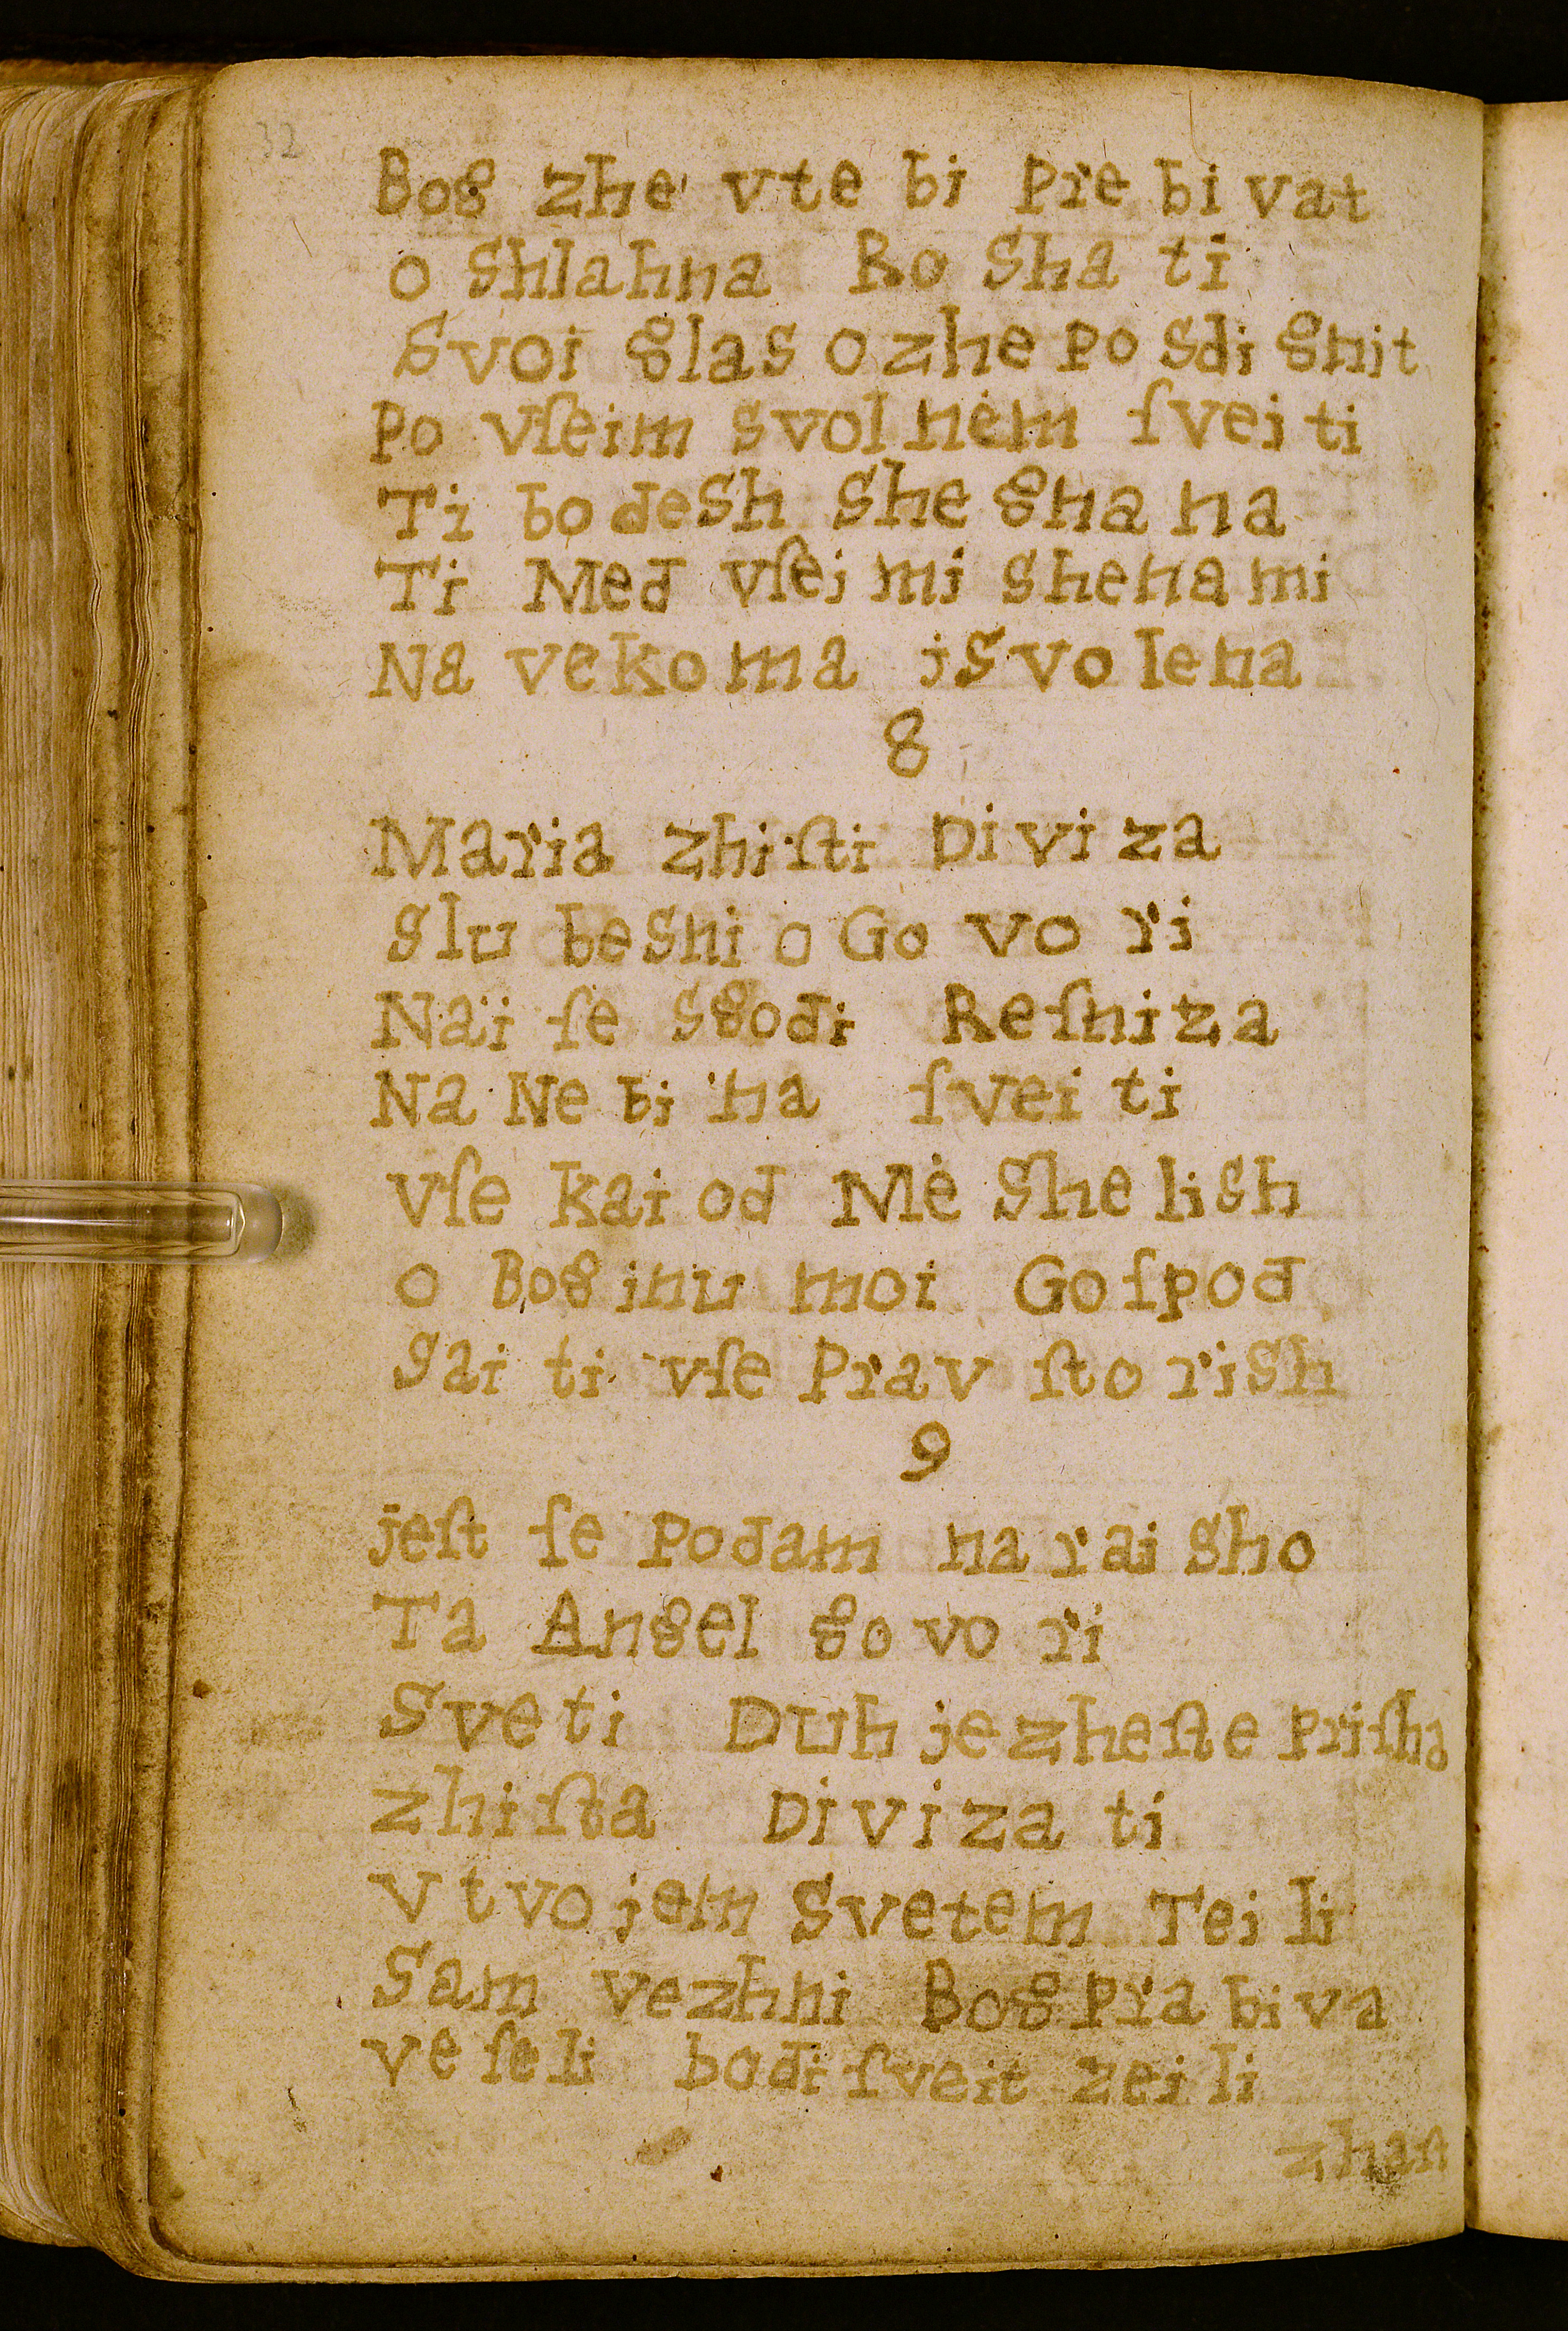 32
Bog zhe vte bi Pre bi vat
o Shlahna Ro Sha ti
Svoi glas ozhe Po Sdi gnit
Po vſeim svolnėm ſvei ti
Ti bo deSh She gna na
Ti Med vſei mi shena mi
Na vekoma jSvo lena
8
Maria zhiſti Divi za
Slu beSni o Go vo ri
Naï ſe Sgodi Reſniza
Na Ne bi na ſvei ti
Vſe kai od Mė She liSh
o Bog inu moi Goſpod
Sai ti vſe Prav ſto riSh
9
jeſt ſe Podam na rai Sho
Ta Angel go vo ri
Sveti Duh je zheſte Priſha
zhiſta Diviza ti
V tvojem Svetem Tei li
Sam vezhni Bog Pra bi va
ve ſeli bodi ſveit zei li
zhaſt